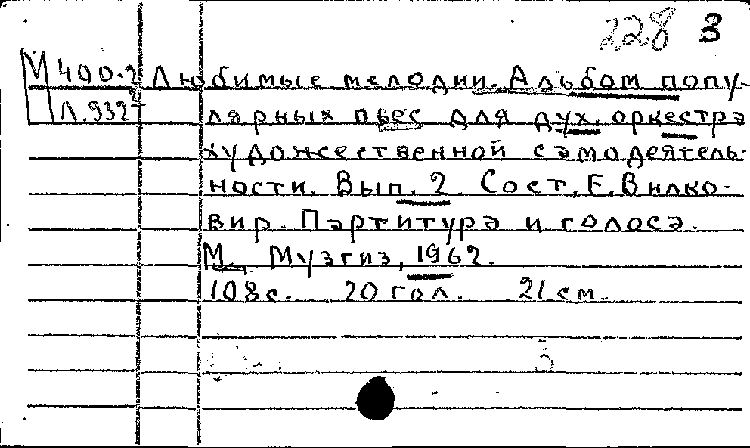 228 3
М400.2 Любимые мелодии. Альбом попу-
Л.932 лярных пьес для дух. оркестра
художественной самодеятель-
ности. Вып. 2. Сост. Е. Вилко-
вир. Партитура и голоса.
М., Музгиз, 1962.
108 с. 20 гол. 21 см.